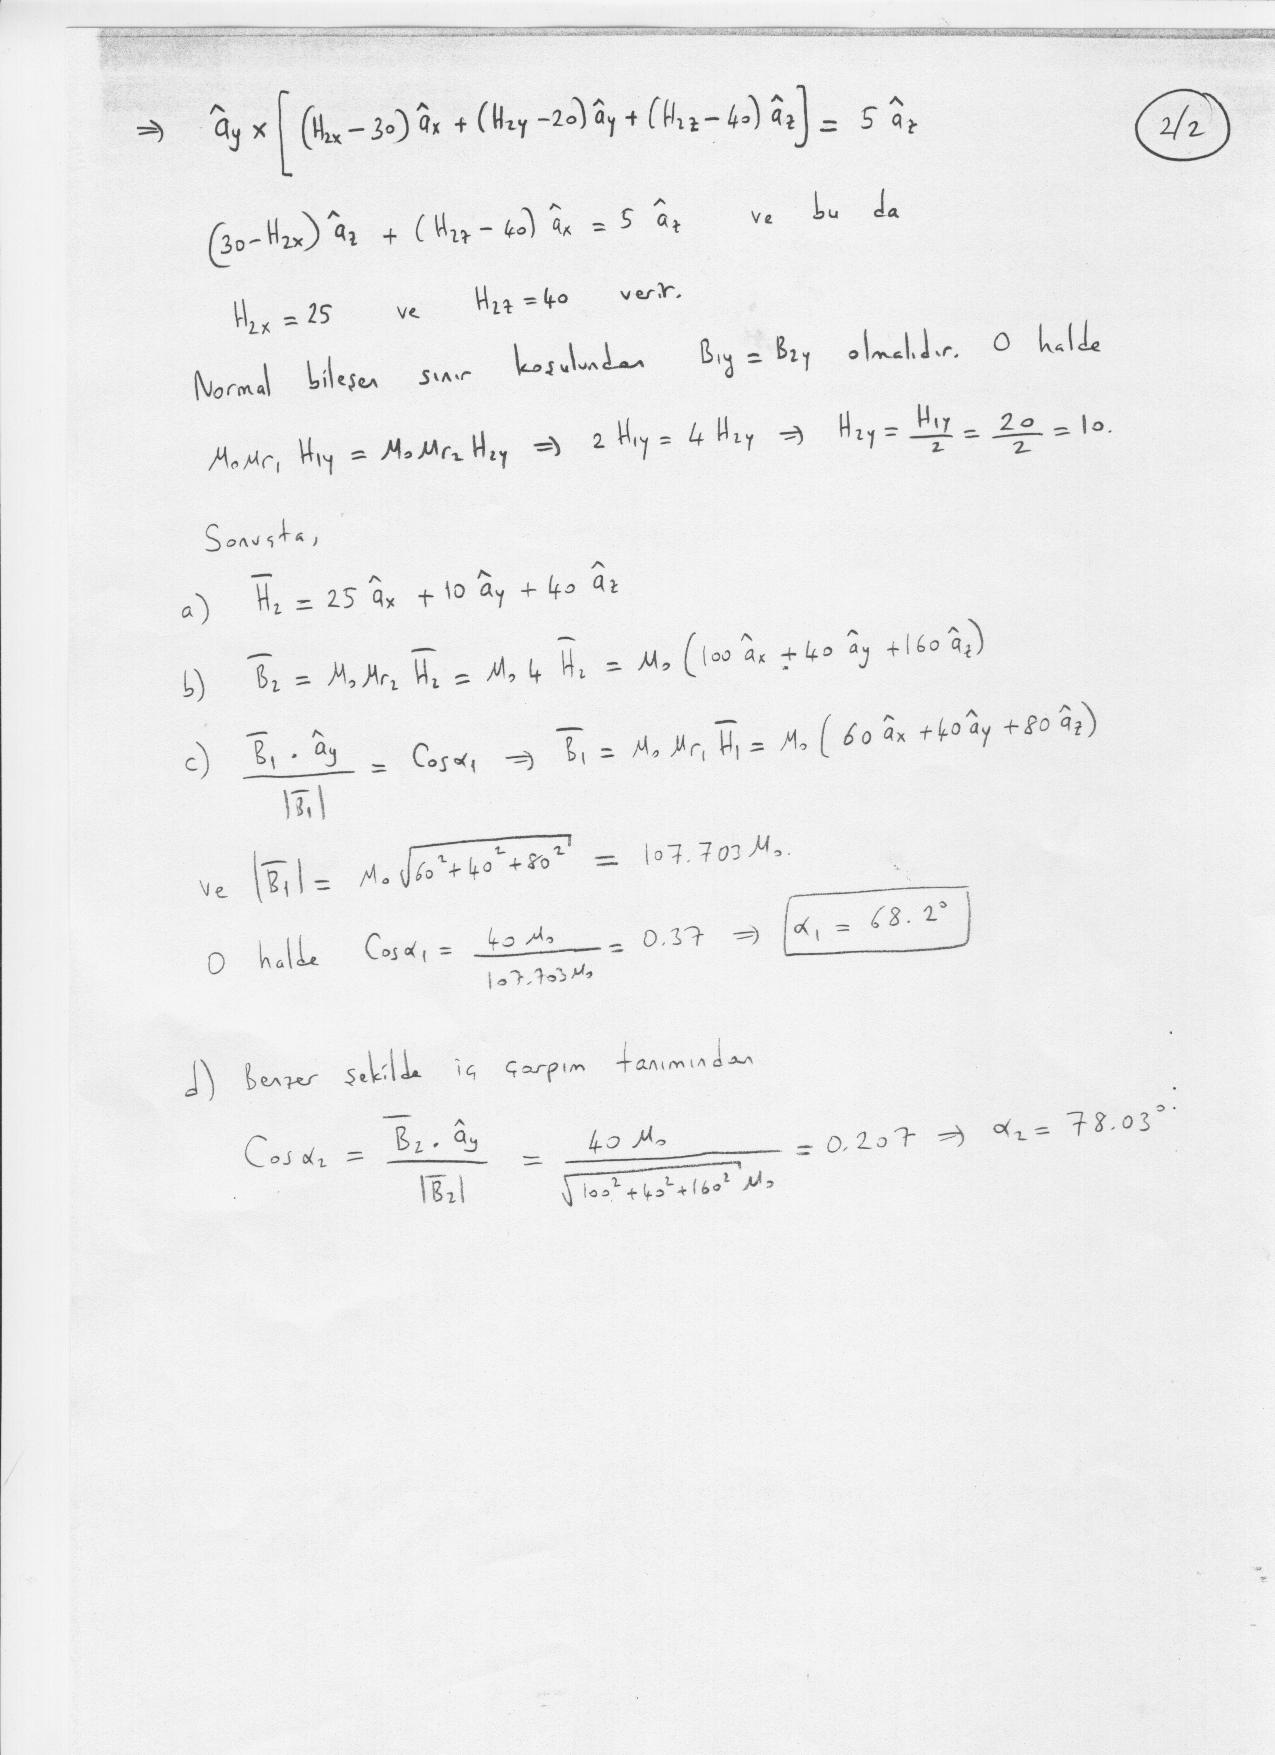 2/2
⇒ â_y × [(H_2x − 30) â_x + (H_2y − 20) â_y + (H_2z − 40) â_z] = 5 â_z
(30 − H_2x) â_z + (H_2z − 40) â_x = 5 â_z ve bu da
H_2x = 25 ve H_2z = 40 verir.
Normal bileşen sınır koşulundan B_1y = B_2y olmalıdır. O halde
μ_0 μ_r1 H_1y = μ_0 μ_r2 H_2y ⇒ 2 H_1y = 4 H_2y ⇒ H_2y = H_1y/2 = 20/2 = 10.
Sonuçta,
a) H̅_2 = 25 â_x + 10 â_y + 40 â_z
b) B̅_2 = μ_0 μ_r2 H̅_2 = μ_0 4 H̅_2 = μ_0 (100 â_x + 40 â_y + 160 â_z)
c) B̅_1 · â_y / |B̅_1| = Cos α_1 ⇒ B̅_1 = μ_0 μ_r1 H̅_1 = μ_0 (60 â_x + 40 â_y + 80 â_z)
ve |B̅_1| = μ_0 √(60² + 40² + 80²) = 107.703 μ_0.
O halde Cos α_1 = 40 μ_0 / 107.703 μ_0 = 0.37 ⇒ α_1 = 68.2°
d) Benzer şekilde iç çarpım tanımından
Cos α_2 = B̅_2 · â_y / |B̅_2| = 40 μ_0 / √(100² + 40² + 160²) μ_0 = 0.207 ⇒ α_2 = 78.03°.